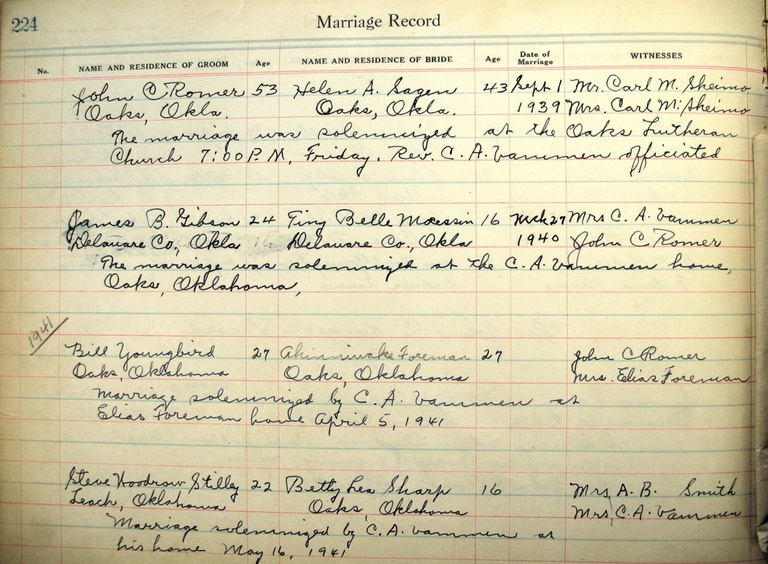 224
Marriage Record
No. NAME AND RESIDENCE OF GROOM Age NAME AND RESIDENCE OF BRIDE Age Date of Marriage WITNESSES
John C Romer 53 Helen A. Sagen 43 Sept 1 Mr. Carl M. Sheimo
Oaks, Okla. Oaks, Okla. 1939 Mrs. Carl M. Sheimo
The marriage was solemnized at the Oaks Lutheran
Church 7:00 P.M, Friday. Rev. C. A. Vammen officiated
James B. Gibson 24 Tiny Belle 16 Mch 27 Mrs C. A. Vammen
Delaware Co., Okla 16 Delaware Co., Okla 1940 John C. Romer
The marriage was solemnized at the C. A. Vammen home,
Oaks, Oklahoma,
1941
Bill Youngbird 27 Ahinniwake Foreman 27 John C Romer
Oaks, Oklahoma Oaks, Oklahoma Mrs. Elias Foreman
Marriage solemnized by C. A. Vammen at
Elias Foreman home April 5, 1941
Steve Woodrow Stilley 22 Betty Lea Sharp 16 Mrs, A. B. Smith
Leach, Oklahoma Oaks, Oklahoma Mrs, C. A. Vammen
Marriage solemnized by C. A. Vammen at
his home May 16, 1941